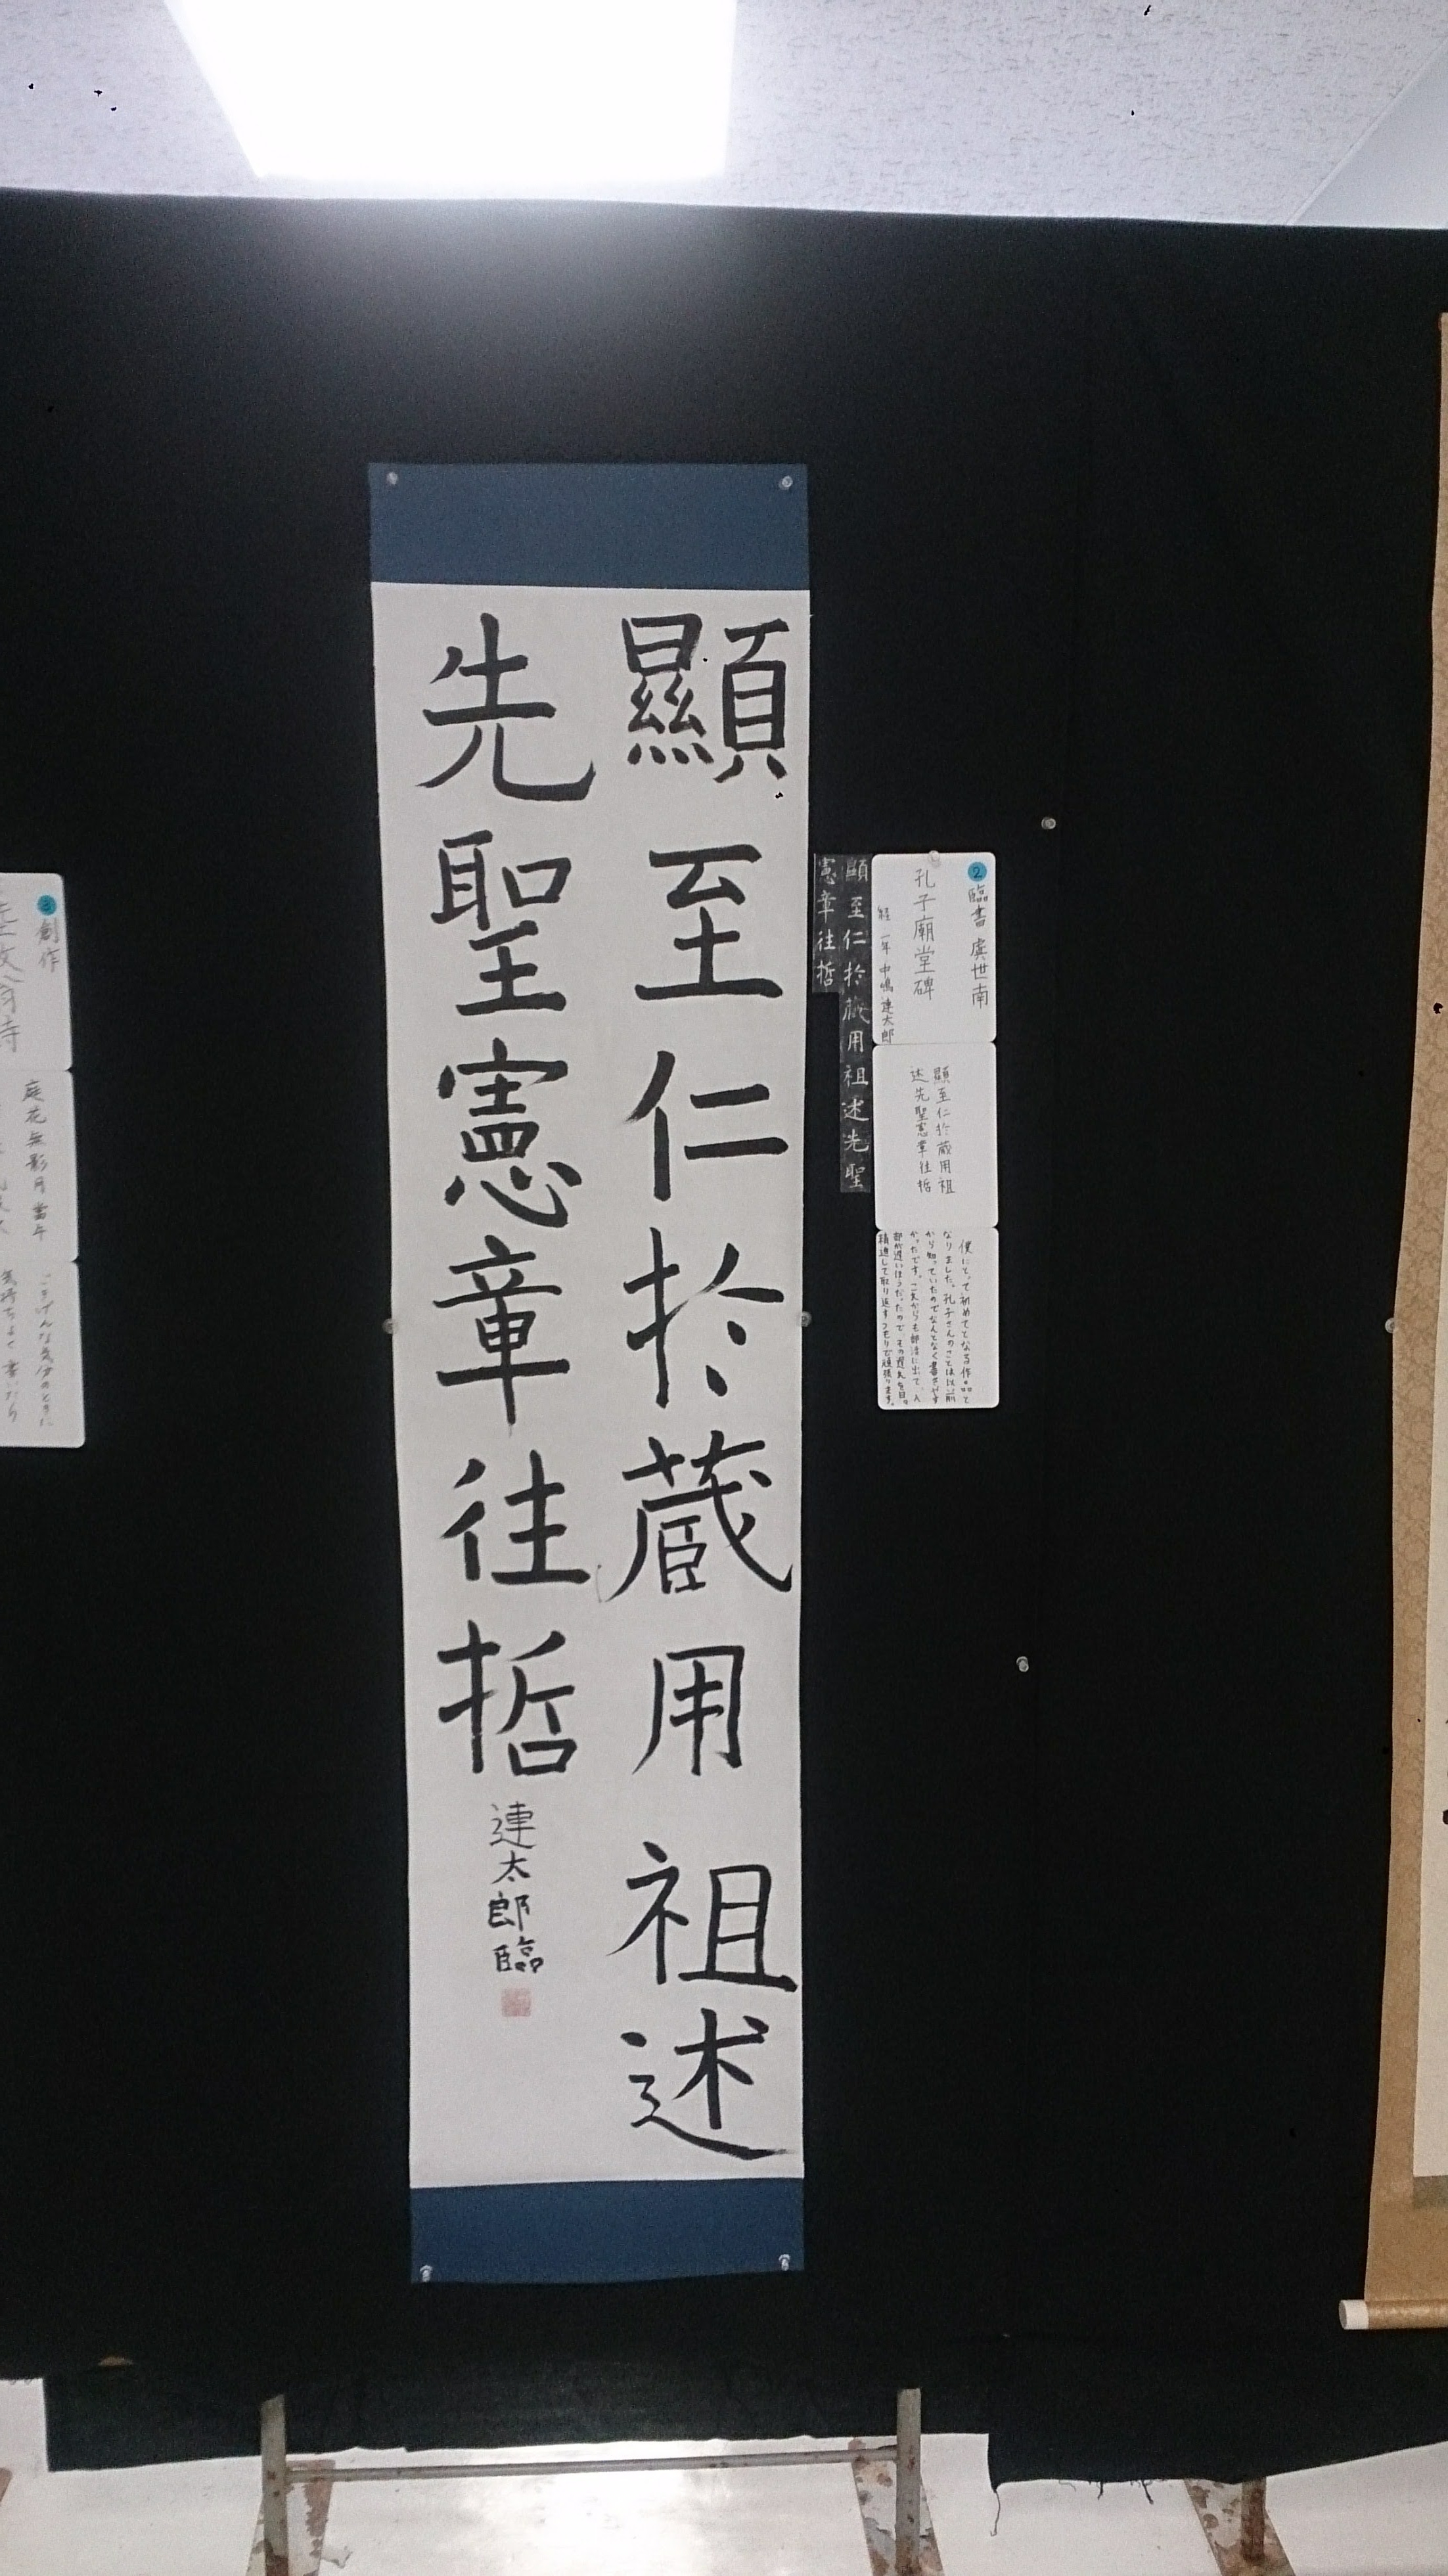 顯至仁於蔵用祖述
先聖憲章往哲
連太郎臨
顯至仁於蔵用祖述先聖
憲章往哲
2 臨書 虞世南
孔子廟堂碑
経一年 中嶋連太郎
顯至仁於蔵用祖
述先聖憲章往哲
僕にとって初めてとなる作品と
なりました。孔子さんのことは以前
から知っていたのでなんとなく書きやす
かったです。これからも部活に出て、入
部が遅いほうだったので、その遅れを日々
精進して取り返すつもりで頑張ります。
3 創作
庭花無影月當午
ごきげんな気分のときに
気持ちよく書いたら